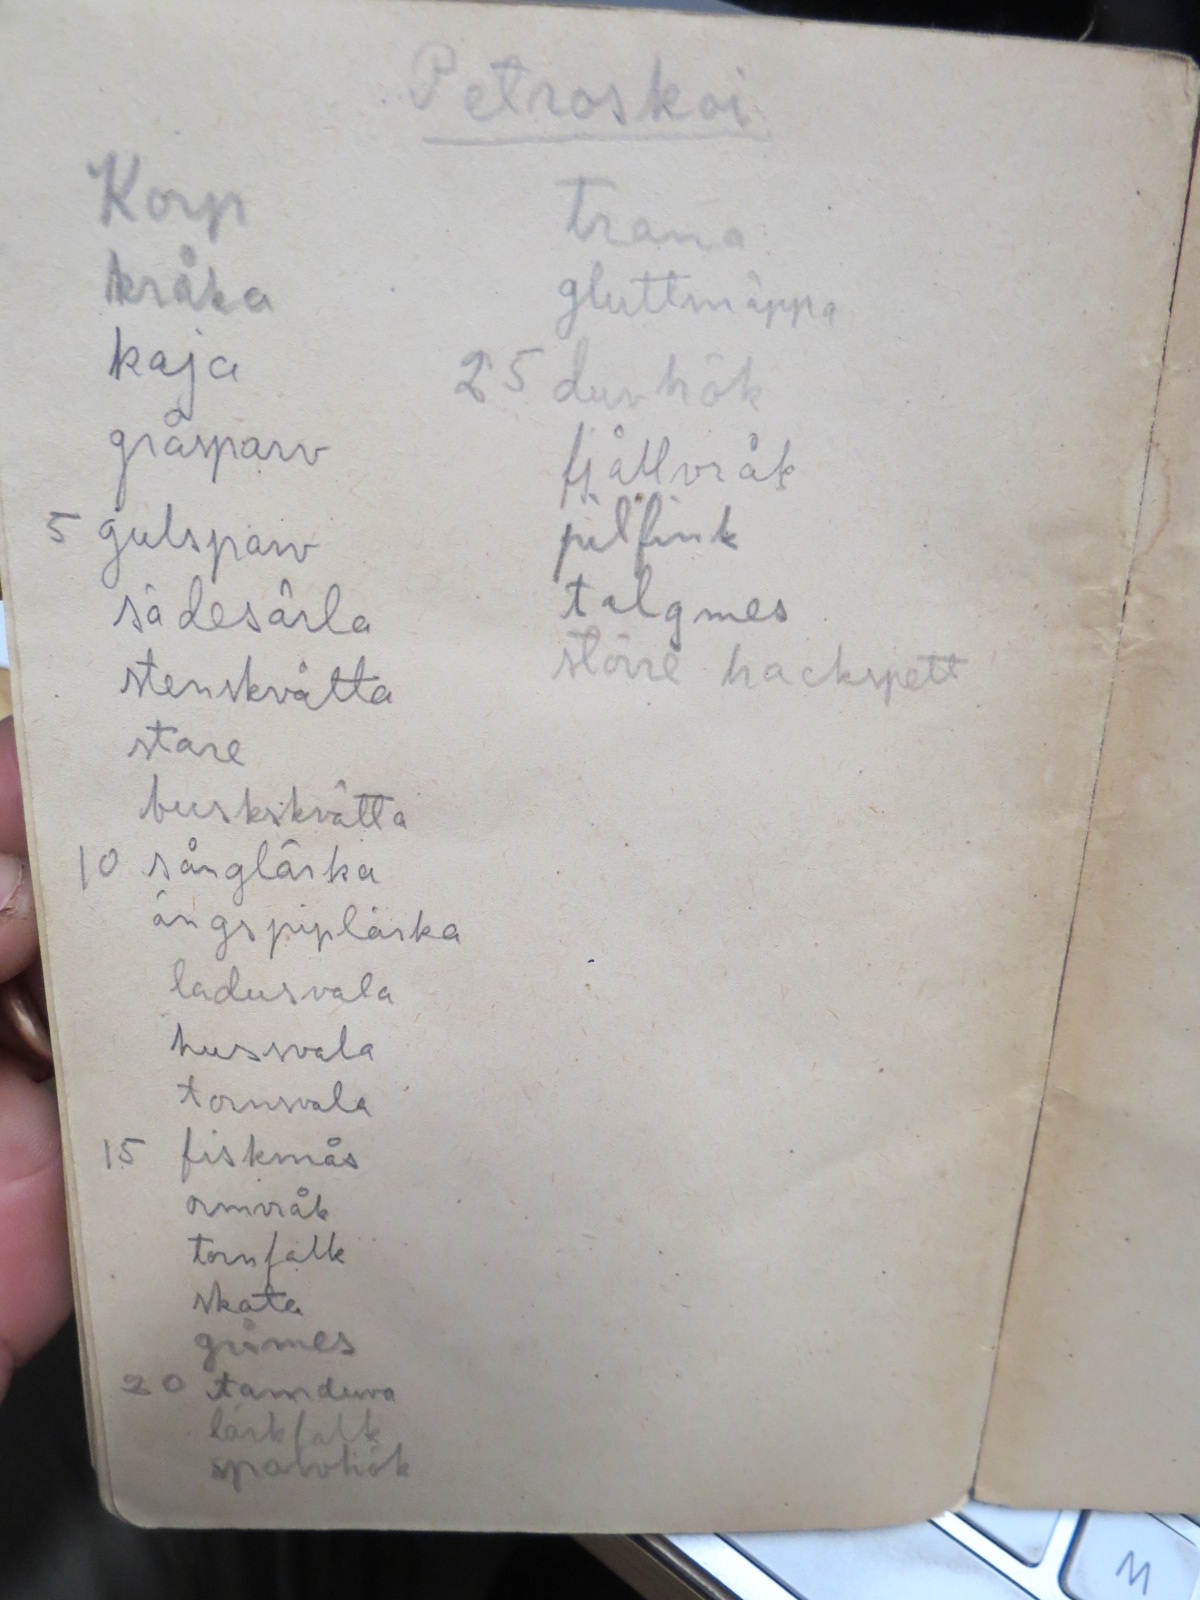 Petroskoi
Korp
kråka
kaja
gråsparv
5 gulsparv
sädesärla
stenskvätta
stare
buskskvätta
10 sånglärka
ängspiplärka
ladusvala
hussvala
tornsvala
15 fiskmås
ormvråk
tornfalk
skata
gråmes
20 tamduva
lärkfalk
sparvhök
trana
gluttsnäppa
25 duvhök
fjällvråk
pilfink
talgmes
större hackspett
M